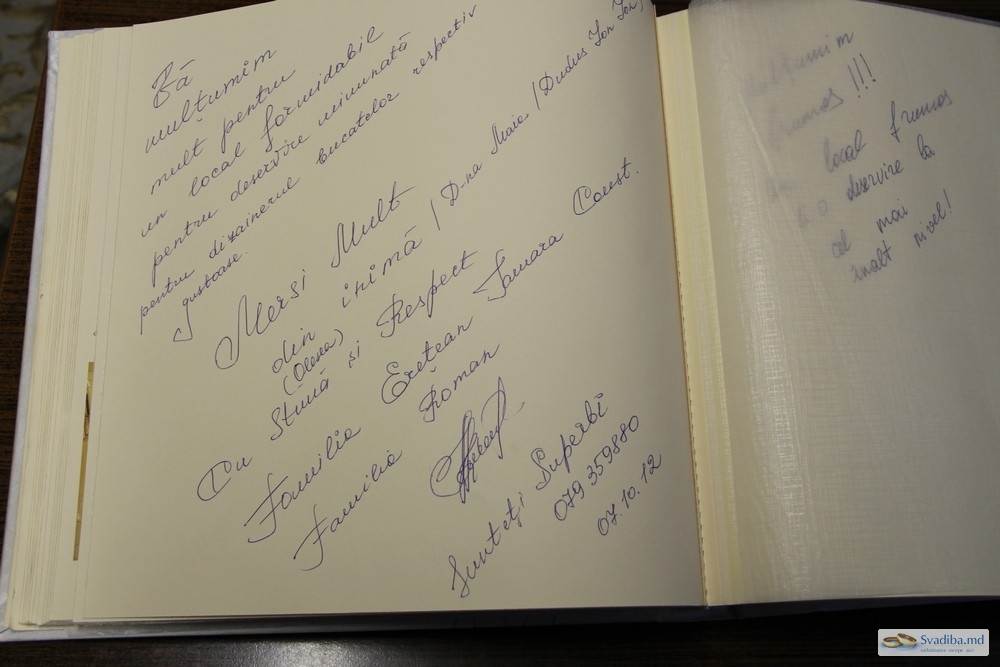 Vă
mulțumim
mult pentru
un local formidabil
pentru deservire minunată
pentru dizainerul bucatelor respectiv
gustoase.
Mersi Mult
din inimă / D-na Maia / Dudus Ion Ion
(Olesea)
Cu Stimă și Respect
Familia Erețean Tamara Const.
Familia Roman
Sunteți Superbi
079 359880
07.10.12
Mulțumim
frumos !!!
local frumos
o deservire la
cel mai
înalt nivel!
Svadiba.md